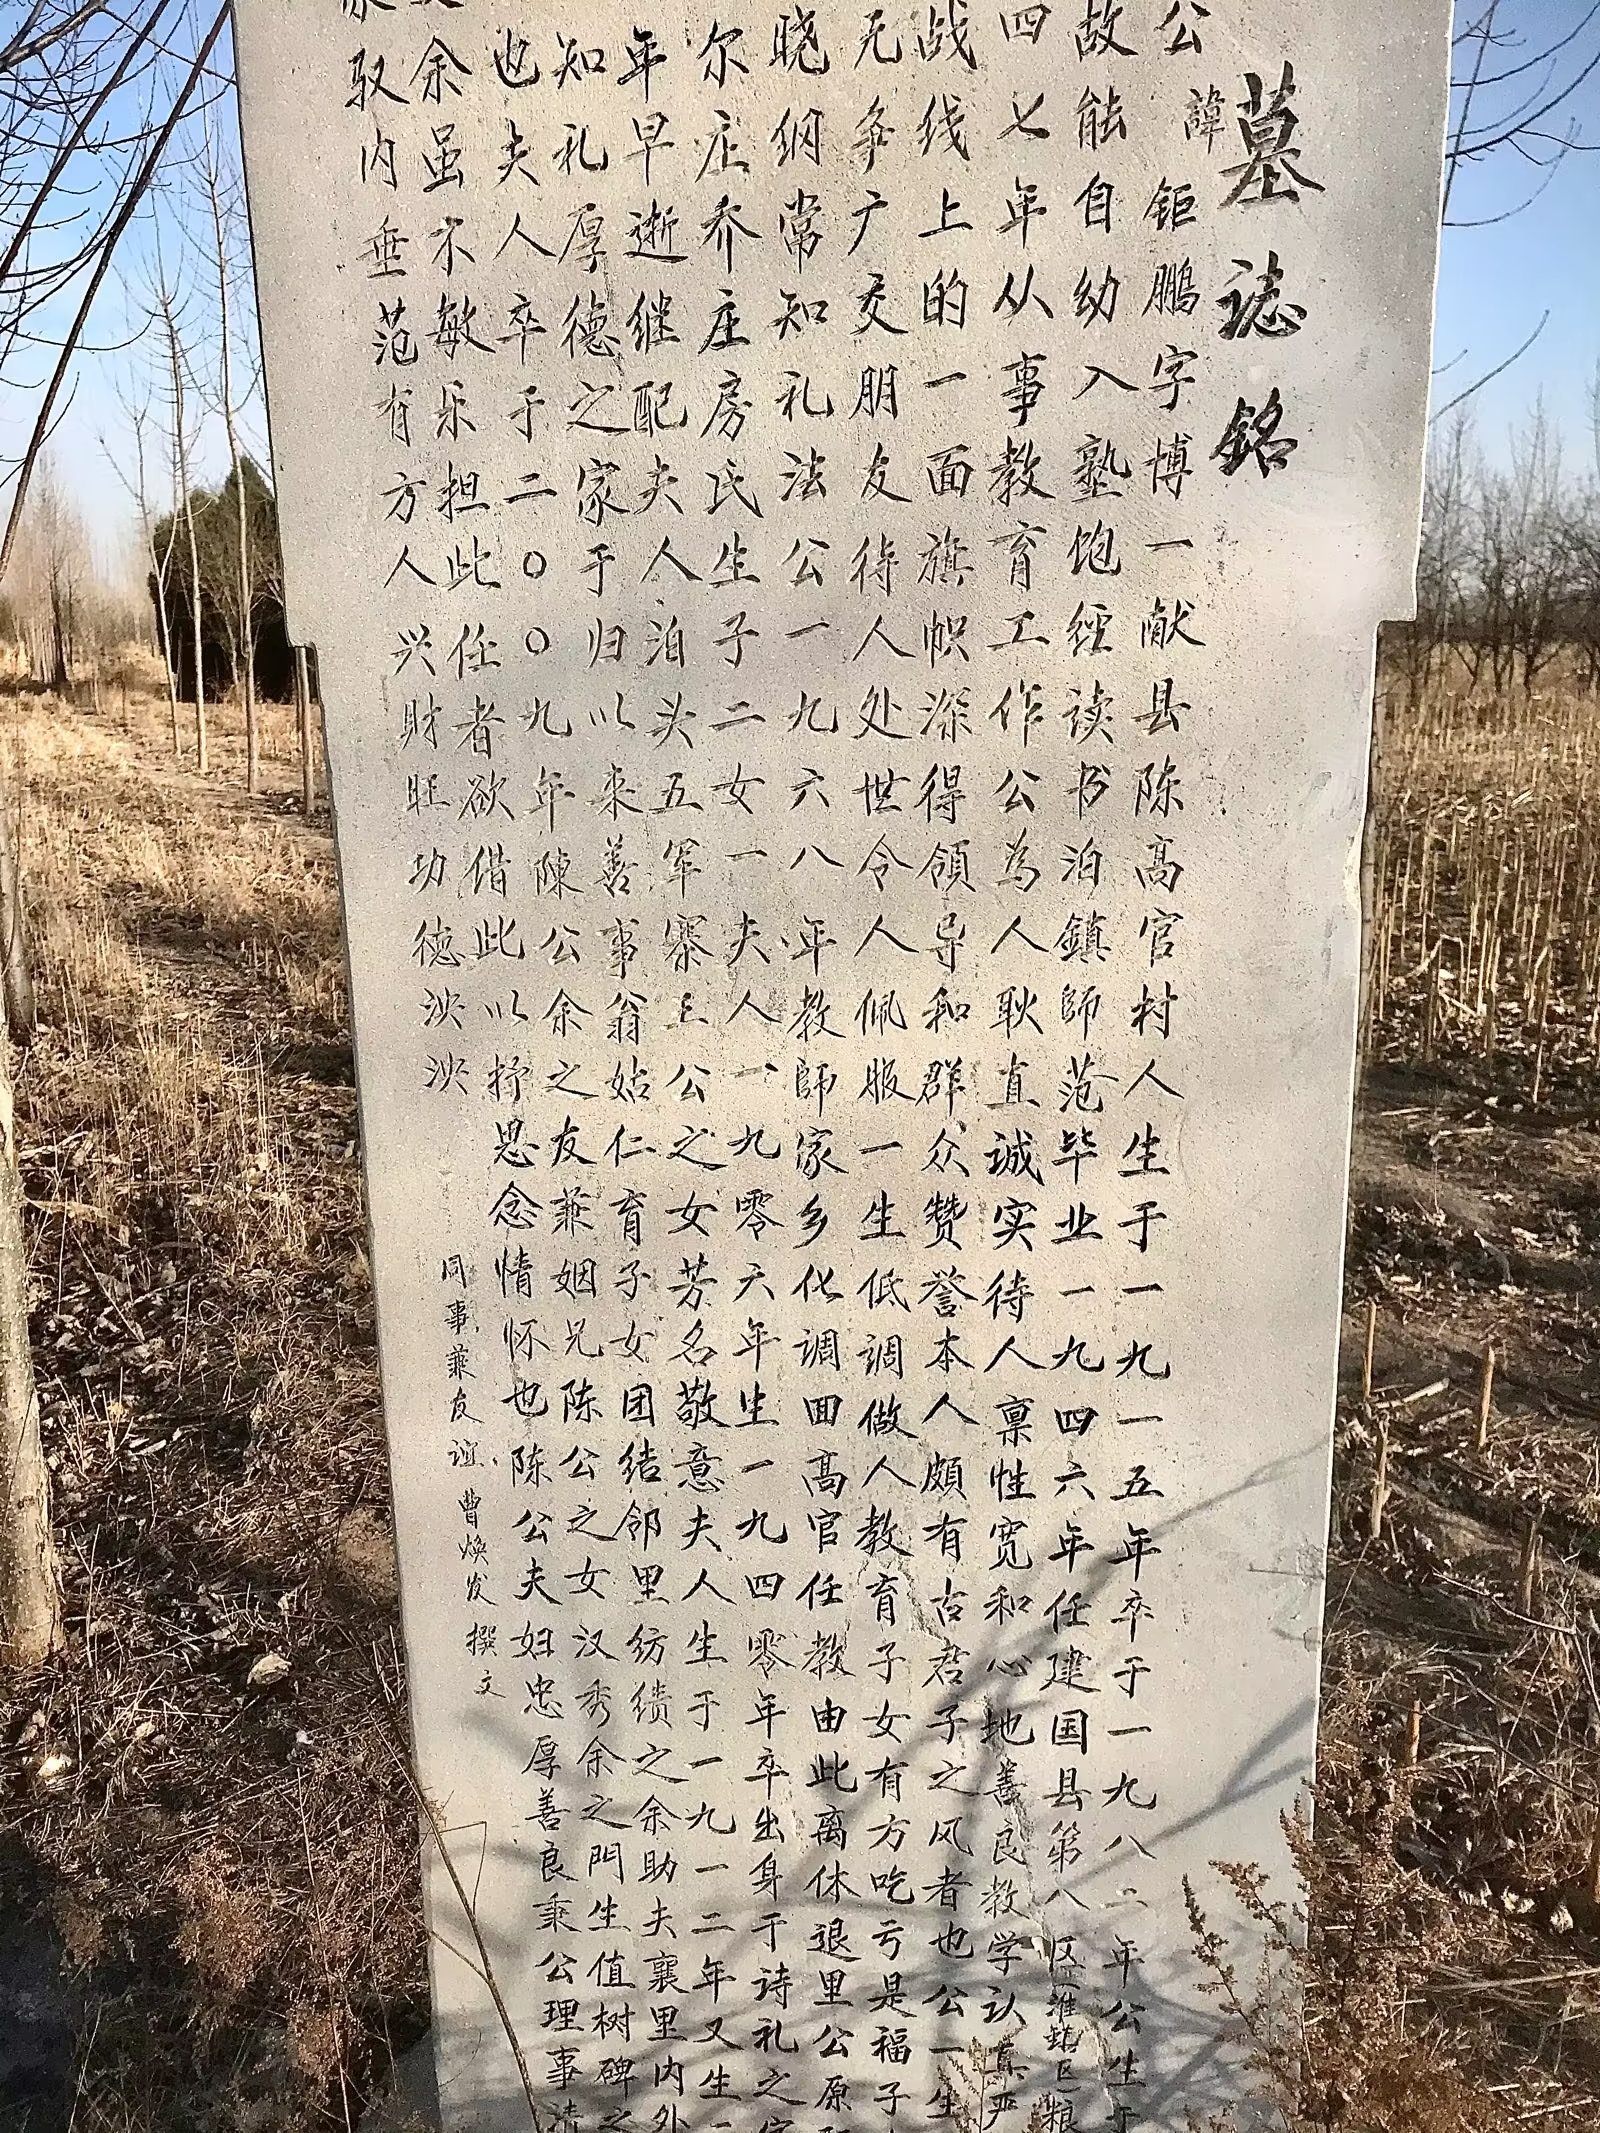 墓誌銘
公諱钜鹏字博一献县陈高官村人生于一九一五年卒于一九八二年公生于
故能自幼入塾饱经读书泊鎮師范毕业一九四六年任建国县第八区(淮鎮区)粮
四七年从事教育工作公為人耿直诚实待人禀性宽和心地善良教学认真严
战线上的一面旗帜深得领导和群众赞誉本人頗有古君子之风者也公一生
无争广交朋友待人处世令人佩服一生低調做人教育子女有方吃亏是福子
晓纲常知礼法公一九六八年教師家乡化调回高官任教由此离休退里公原
尔庄乔庄房氏生子二女一夫人一九零六年生一九四零年卒出身于诗礼之
年早逝继配夫人泊头五军寨王公之女芳名敬意夫人生于一九一二年又生
知礼厚德之家于归以来善事翁姑仁育子女团结邻里纺绩之余助夫襄里内外
也夫人卒于二〇〇九年陳公余之友兼姻兄陈公之女汉秀余之門生值树碑之
余虽不敏乐担此任者欲借此以抒思念情怀也陈公夫妇忠厚善良秉公理事
驭内垂范有方人兴财旺功德泱泱
同事兼友谊曹焕发撰文